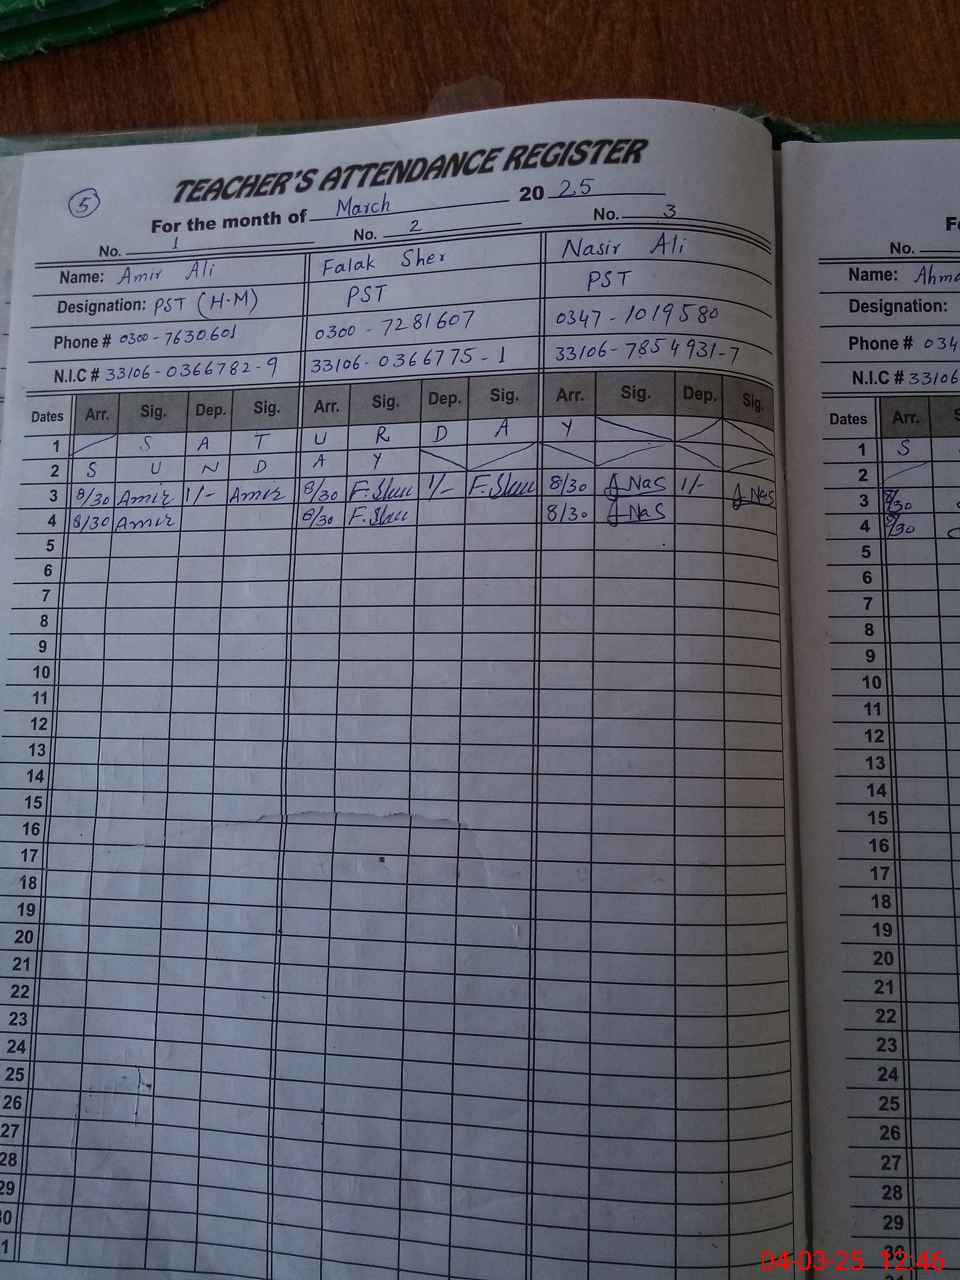 TEACHER'S ATTENDANCE REGISTER
5
For the month of March 2025
No. 1 No. 2 No. 3
Name: Amir Ali Falak Sher Nasir Ali
Designation: PST (H.M) PST PST
Phone # 0300-7630601 0300-7281607 0347-1019580
N.I.C # 33106-0366782-9 33106-0366775-1 33106-7854931-7
Dates Arr. Sig. Dep. Sig. Arr. Sig. Dep. Sig. Arr. Sig. Dep. Sig.
1 S A T U R D A Y
2 S U N D A Y
3 8/30 Amir 1/- Amir 8/30 F.Sher 1/- F.Sher 8/30 Nas 1/- Nas
4 8/30 Amir 8/30 F.Sher 8/30 Nas
5
6
7
8
9
10
11
12
13
14
15
16
17
18
19
20
21
22
23
24
25
26
27
28
29
30
1
No.
Name: Ahma
Designation:
Phone # 034
N.I.C # 33106
Dates Arr. S
1 S
2
3 8/30
4 8/30
5
6
7
8
9
10
11
12
13
14
15
16
17
18
19
20
21
22
23
24
25
26
27
28
29
30
04-03-25 12:46